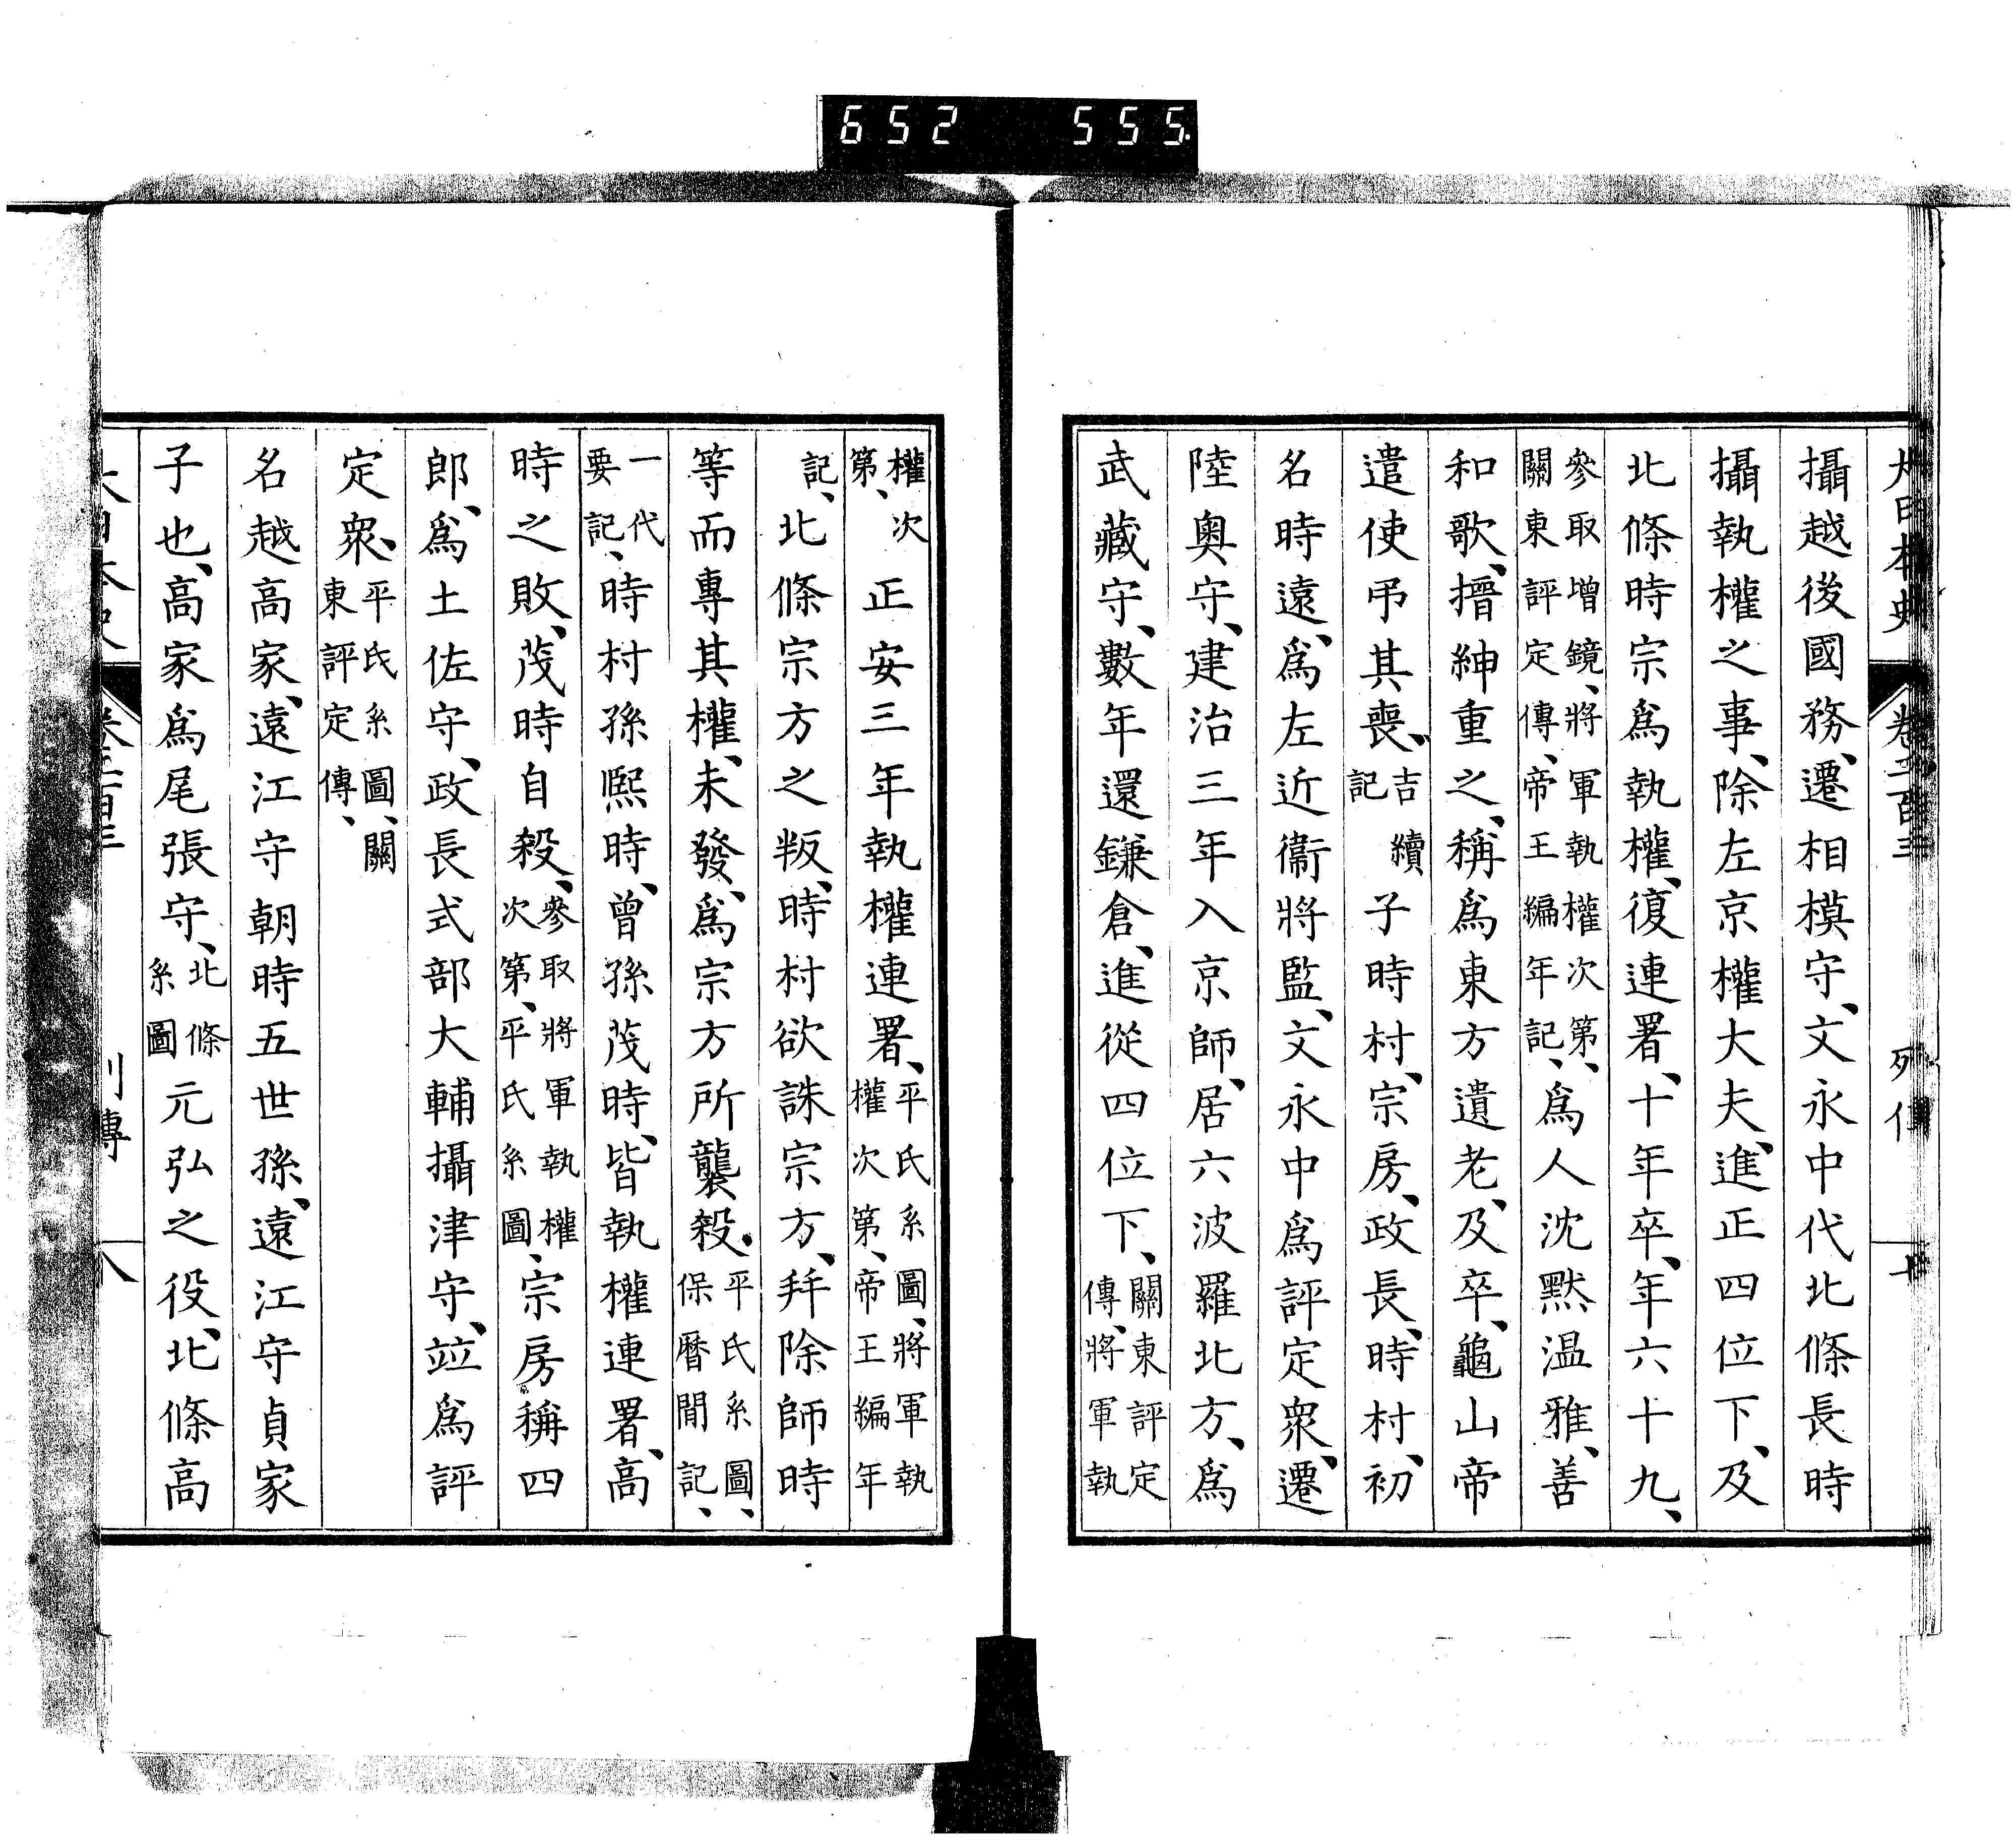 652 555
攝越後國務、遷相模守、文永中代北條長時
攝執權之事、除左京權大夫、進正四位下、及
北條時宗爲執權、復連署、十年卒、年六十九、
參取增鏡、將軍執權次第、
關東評定傳、帝王編年記、
爲人沈默温雅、善
和歌、搢紳重之、稱爲東方遺老、及卒、龜山帝
遣使弔其喪、
吉續
記
子時村、宗房、政長、時村、初
名時遠、爲左近衞將監、文永中爲評定衆、遷
陸奥守、建治三年入京師、居六波羅北方、爲
武藏守、數年還鎌倉、進從四位下、
關東評定
傳、將軍執
權次
第、
正安三年執權連署、
平氏系圖、將軍執
權次第、帝王編年
記、
北條宗方之叛、時村欲誅宗方、拜除師時
等而專其權、未發、爲宗方所襲殺、
平氏系圖、
保暦間記、
一代
要記、
時村孫熈時、曾孫茂時、皆執權連署、高
時之敗、茂時自殺、
參取將軍執權
次第、平氏系圖、
宗房稱四
郎、爲土佐守、政長式部大輔攝津守、竝爲評
定衆、
平氏系圖、關
東評定傳、
名越高家、遠江守朝時五世孫、遠江守貞家
子也、高家爲尾張守、
北條
系圖
元弘之役、北條高